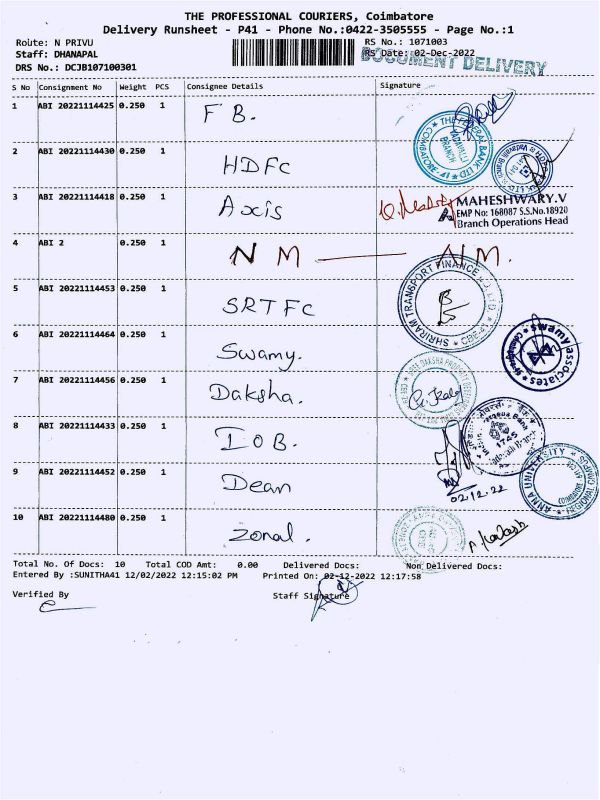 THE PROFESSIONAL COURIERS, Coimbatore
Delivery Runsheet - P41 - Phone No.:0422-3505555 - Page No.:1
Route: N PRIVU
RS No.: 1071003
Staff: DHANAPAL
RS Date: 02-Dec-2022
DOCUMENT DELIVERY
DRS No.: DCJB107100301
S No Consignment No Weight PCS Consignee Details Signature
1 ABI 20221114425 0.250 1 F B.
2 ABI 20221114430 0.250 1 HDFC
3 ABI 20221114418 0.250 1 Axis
MAHESHWARY.V
EMP No: 168087 S.S.No.18920
Branch Operations Head
4 ABI 2 0.250 1 N M — N M.
5 ABI 20221114453 0.250 1 SRTFC
SHRIRAM TRANSPORT FINANCE
6 ABI 20221114464 0.250 1 Swamy.
swamy associates
7 ABI 20221114456 0.250 1 Daksha.
8 ABI 20221114433 0.250 1 IOB.
9 ABI 20221114452 0.250 1 Dean
02.12.22
ANNA UNIVERSITY
10 ABI 20221114480 0.250 1 Zonal.
Total No. Of Docs: 10 Total COD Amt: 0.00 Delivered Docs: Non Delivered Docs:
Entered By :SUNITHA41 12/02/2022 12:15:02 PM Printed On: 02-12-2022 12:17:58
Verified By Staff Signature